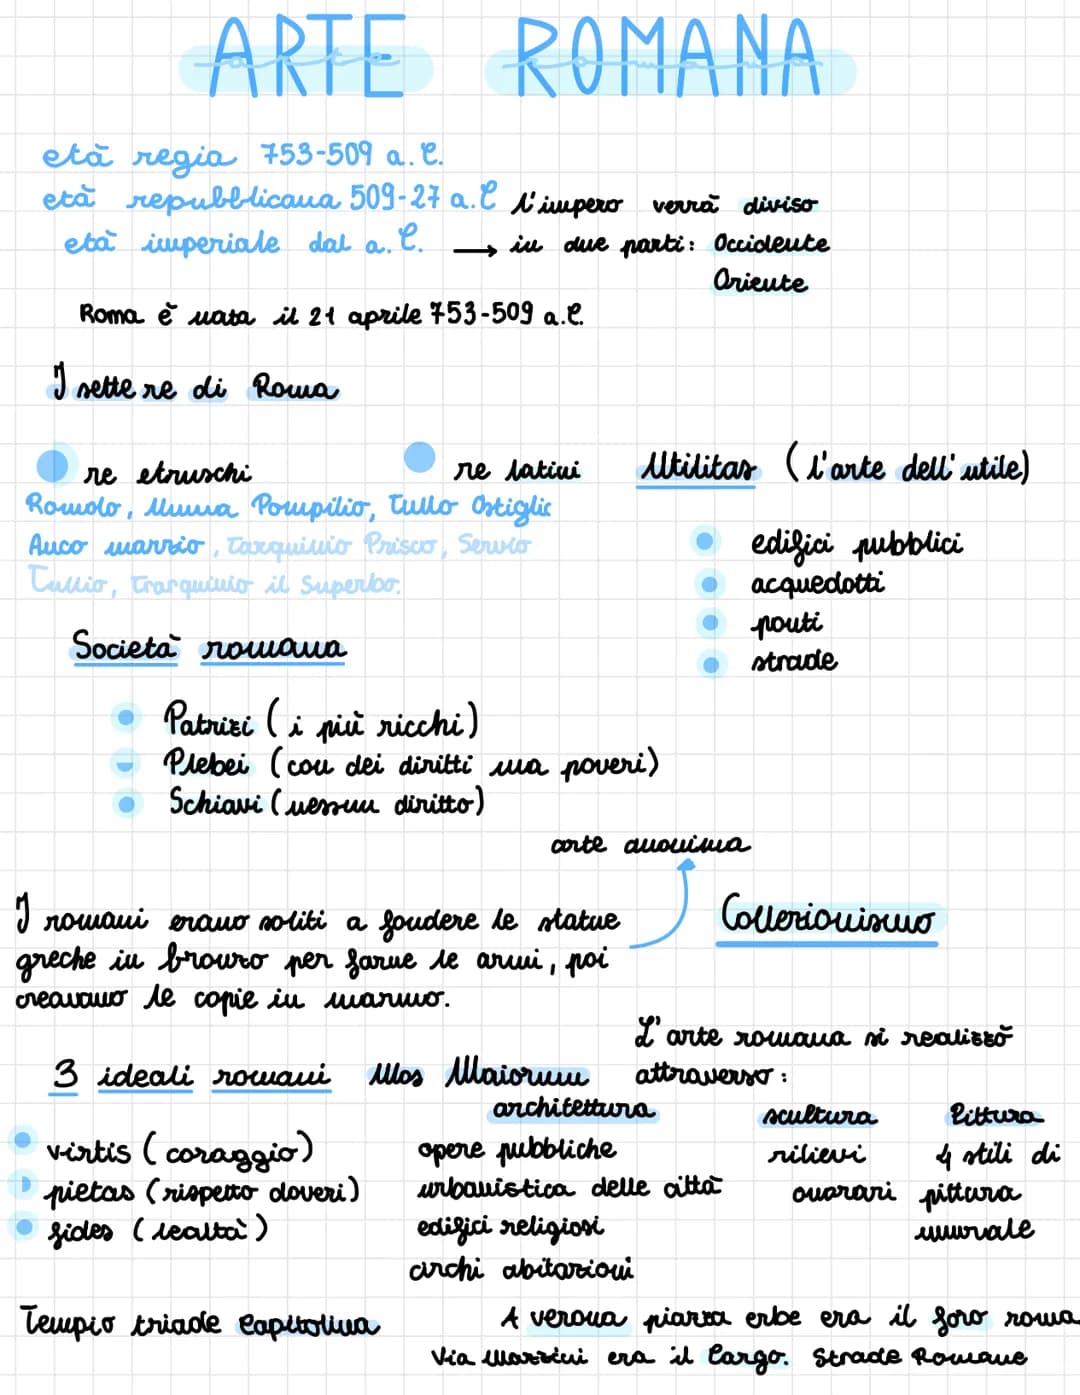 ARTE ROMANA
arte romana
età regia 753-509 a.C.
età repubblicana 509-27 a.C
età imperiale dal a.C. → L'impero verrà diviso
in due parti: Occidente
Oriente
Roma è nata il 21 aprile 753-509 a.C.
I sette re di Roma
re etruschi
re latini
Romolo, Numa Pompilio, Tullo Ostiglio
Anco marzio, Tarquinio Prisco, Servio
Tullio, Trarquinio il Superbo.
Utilitas (l'arte dell'utile)
edifici pubblici
acquedotti
ponti
strade
Società romana
Patrizi (i più ricchi)
Plebei (con dei diritti ma poveri)
Schiavi (nessun diritto)
arte anonima
I romani erano soliti a fondere le statue
greche in bronzo per farne le armi, poi
creavano le copie in marmo.
Collezionismo
3 ideali romani Mos Maiorum
virtis (coraggio)
pietas (rispetto doveri)
fides (lealtà)
L'arte romana si realizzò
attraverso:
architettura
opere pubbliche
urbanistica delle città
edifici religiosi
archi abitazioni
scultura
rilievi
onorari
Pittura
4 stili di
pittura
murale
Tempio triade Capitolina
A verona piazza erbe era il foro roma
Via Mazzini era il Cargo. Strade Romane